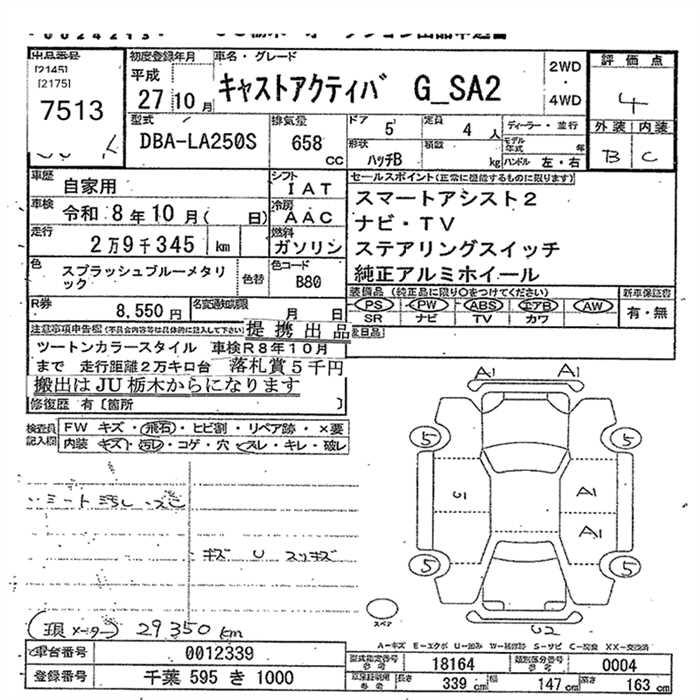 出品番号
[2145]
[2175]
7513
初度登録年月
平成
27年10月
車名・グレード
キャストアクティバ G_SA2
2WD
・
4WD
評価点
4
型式
DBA-LA250S
排気量
658
CC
ドア
5
定員
4人
ディーラー・並行
外装 内装
B C
形状
ハッチB
積数
kg
モデル年式
年
ハンドル 左・右
車歴
自家用
シフト
IAT
セールスポイント(正常に機能するものに限ります)
スマートアシスト2
ナビ・TV
ステアリングスイッチ
純正アルミホイール
車検
令和 8年10月(　日)
冷房
AAC
走行
2万9千345 km
燃料
ガソリン
色
スプラッシュブルーメタリック
色替
色コード
B80
R券
8,550円
名変通知期限
月　日
装備品 (純正品に限り○をつけてください)
PS PW ABS エアB AW
SR ナビ TV カワ
新車保証書
有・無
注意事項申告欄
提携出品
ツートンカラースタイル 車検R8年10月
まで 走行距離2万キロ台 落札賞5千円
搬出はJU栃木からになります
修復歴 有〔箇所　〕
検査員
記入欄
FW キズ・飛石・ヒビ割・リペア跡・×要
内装 キズ・汚レ・コゲ・穴・スレ・キレ・破レ
シート汚レ
キズ U スリキズ
A1 A1
5 5
A1
A1
5 5
U2
スペア
(現メーター) 29350km
A-キズ E-エクボ
車台番号
0012339
型式指定番号
参考
18164
類別区分番号
参考
0004
登録番号
千葉 595 き 1000
長さ
339 cm
幅
147 cm
高さ
163 cm